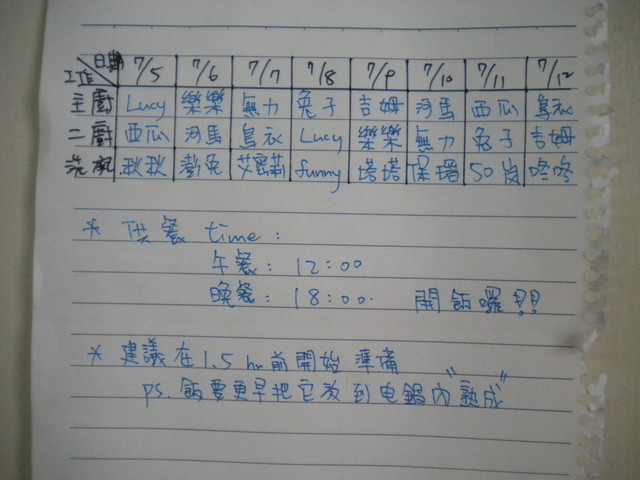 日期 7/5 7/6 7/7 7/8 7/9 7/10 7/11 7/12
工作
主廚 Lucy 樂樂 無力 兔子 吉姆 河馬 西瓜 鳥衣
二廚 西瓜 河馬 鳥衣 Lucy 樂樂 無力 兔子 吉姆
洗碗 秋秋 艾蜜莉 funny 塔塔 50岚 咚咚
* 供餐 time:
午餐: 12:00
晚餐: 18:00. 開飯囉!!
* 建議在1.5 hr前開始準備
ps. 飯要更早把它放到电鍋內"熟成"